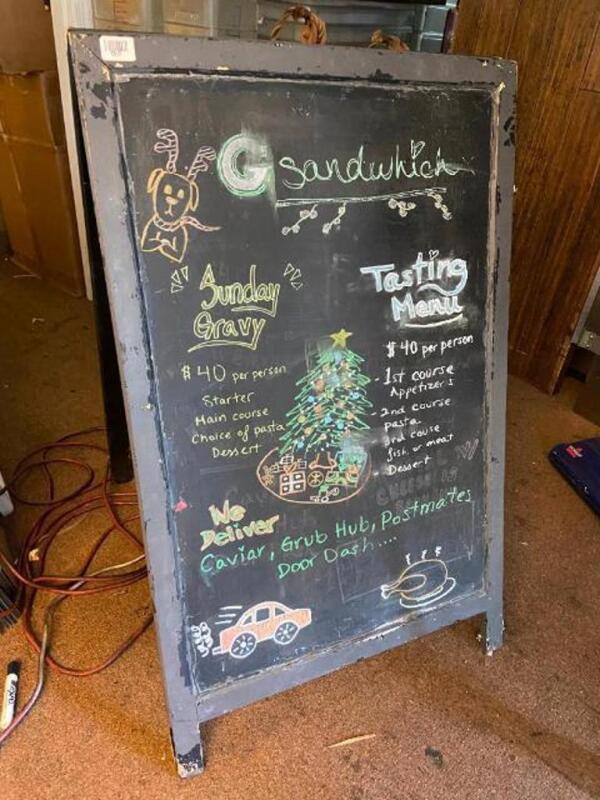 G Sandwhich
Sunday
Gravy
$40 per person
Starter
Main course
Choice of pasta
Dessert
Tasting
Menu
$40 per person
- 1st course
Appetizers
- 2nd course
pasta
- 3rd couse
fish or meat
- Dessert
We
Deliver
Caviar, Grub Hub, Postmates
Door Dash....